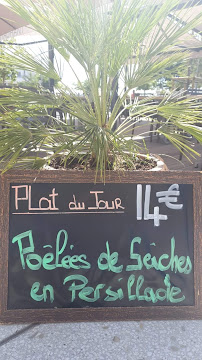 Plat du Jour 14€
Poêlées de Seîches
en Persillade